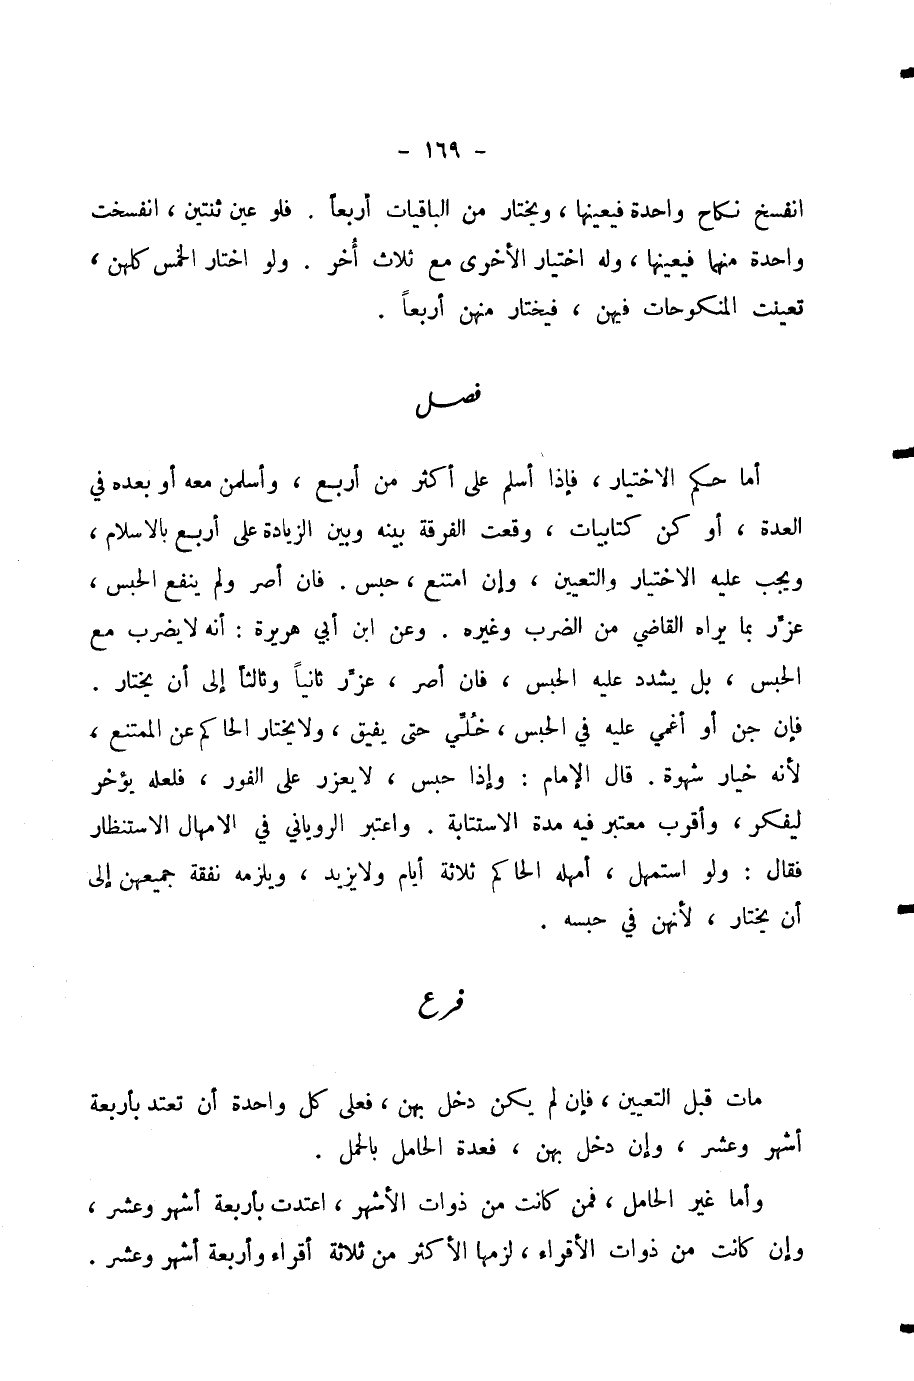 - ١٦٩ -
انفسخ نكاح واحدة فيعينها ، ويختار من الباقيات أربعاً . فلو عين ثنتين ، انفسخت
واحدة منهما فيعينها ، وله اختيار الأخرى مع ثلاث أُخر . ولو اختار الخمس كلهن ،
تعينت المنكوحات فيهن ، فيختار منهن أربعاً .
فصل
أما حكم الاختيار ، فإذا أسلم على أكثر من أربع ، وأسلمن معه أو بعده في
العدة ، أو كن كتابيات ، وقعت الفرقة بينه وبين الزيادة على أربع بالاسلام ،
ويجب عليه الاختيار والتعيين ، وإن امتنع ، حبس . فان أصر ولم ينفع الحبس ،
عزّر بما يراه القاضي من الضرب وغيره . وعن ابن أبي هريرة : أنه لايضرب مع
الحبس ، بل يشدد عليه الحبس ، فان أصر ، عزّر ثانياً وثالثاً إلى أن يختار .
فإن جن أو أغمي عليه في الحبس ، خُلّي حتى يفيق ، ولايختار الحاكم عن الممتنع ،
لأنه خيار شهوة . قال الإمام : وإذا حبس ، لايعزر على الفور ، فلعله يؤخر
ليفكر ، وأقرب معتبر فيه مدة الاستتابة . واعتبر الروياني في الامهال الاستنظار
فقال : ولو استمهل ، أمهله الحاكم ثلاثة أيام ولايزيد ، ويلزمه نفقة جميعهن إلى
أن يختار ، لأنهن في حبسه .
فرع
مات قبل التعيين ، فإن لم يكن دخل بهن ، فعلى كل واحدة أن تعتد بأربعة
أشهر وعشر ، وإن دخل بهن ، فعدة الحامل بالحمل .
وأما غير الحامل ، فمن كانت من ذوات الأشهر ، اعتدت بأربعة أشهر وعشر ،
وإن كانت من ذوات الأقراء ، لزمها الأكثر من ثلاثة أقراء وأربعة أشهر وعشر .